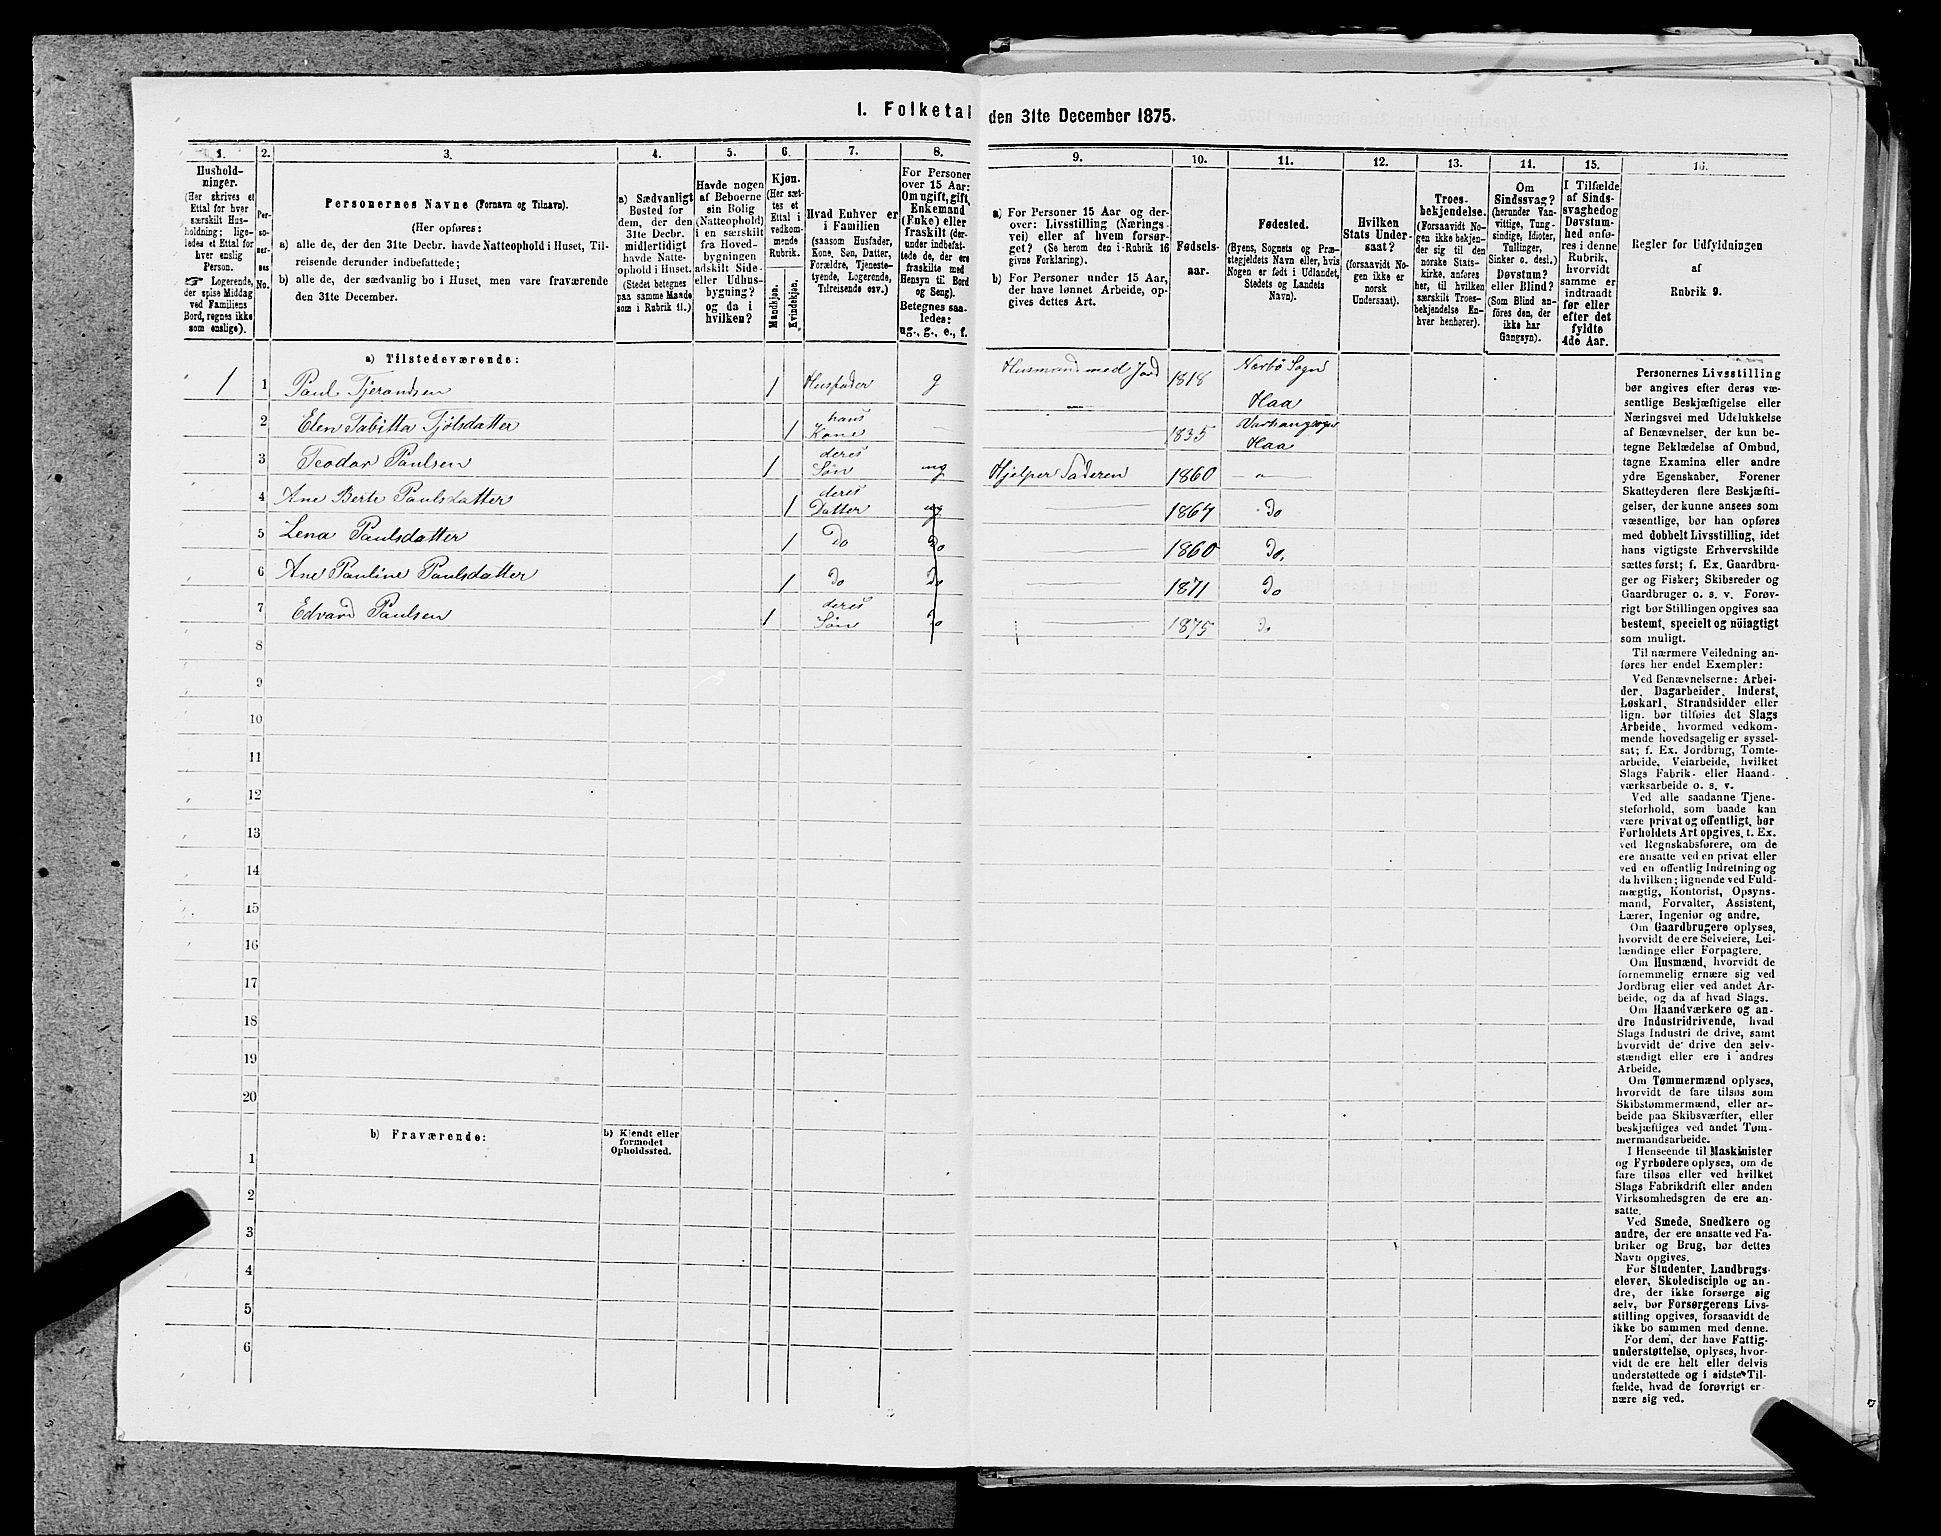 I. Folketal den 31te December 1875.
1. 2. 3. 4. 5. 6. 7. 8. 9. 10. 11. 12. 13. 11. 15. 16.
Hushold-
ninger.
(Her skrives et
Ettal for hver
særskilt Hus-
holdning; lige-
ledes et Ettal for
hver enslig
Person.
☞ Logerende,
der spise Middag
ved Familiens
Bord, regnes ikke
som enslige).
Per-
so-
ner-
nes
No.
Personernes Navne (Fornavn og Tilnavn).
(Her opføres:
a) alle de, der den 31te Decbr. havde Natteophold i Huset, Til-
reisende derunder indbefattede;
b) alle de, der sædvanlig bo i Huset, men vare fraværende
den 31te December.
a) Sædvanligt
Bosted for
dem, der den
31te Decbr.
midlertidigt
havde Natte-
ophold i Huset.
(Stedet betegnes
paa samme Maade
som i Rubrik 11.)
Havde nogen
af Beboerne
sin Bolig
(Natteophold)
i en særskilt
fra Hoved-
bygningen
adskilt Side-
eller Udhus-
bygning?
og da i
hvilken?
Kjøn.
(Her sæt-
tes et
Ettal i
vedkom-
mende
Rubrik.
Mandkjøn.
Kvindekjøn.
Hvad Enhver er
i Familien
(saasom Husfader,
Kone, Søn, Datter,
Forældre, Tjeneste-
tyende, Logerende,
Tilreisende osv.)
For Personer
over 15 Aar:
Om ugift, gift,
Enkemand
(Enke) eller
fraskilt (der-
under indbefat-
tede de, der ere
fraskilte med
Hensyn til Bord
og Seng).
Betegnes saa-
ledes:
ug., g., e., f.
a) For Personer 15 Aar og der-
over: Livsstilling (Nærings-
vei) eller af hvem forsør-
get? (Se herom den i Rubrik 16
givne Forklaring).
b) For Personer under 15 Aar,
der have lønnet Arbeide, op-
gives dettes Art.
Fødsels-
aar.
Fødested.
(Byens, Sognets og Præ-
stegjeldets Navn eller, hvis
Nogen er født i Udlandet,
Stedets og Landets
Navn).
Hvilken
Stats Under-
saat?
(forsaavidt No-
gen ikke er
norsk
Undersaat).
Troes-
bekjendelse.
(Forsaavidt No-
gen ikke bekjen-
der sig til den
norske Stats-
kirke, anføres
her, til hvilken
særskilt Troes-
bekjendelse En-
hver henhører).
Om
Sindssvag?
(herunder Van-
vittige, Tung-
sindige, Idioter,
Tullinger,
Sinker o. desl.)
Døvstum?
eller Blind?
(Som Blind an-
føres den, der
ikke har
Gangsyn).
I Tilfælde
af Sinds-
svaghed og
Døvstum-
hed anfø-
res i denne
Rubrik,
hvorvidt
samme er
indtraadt
før eller
efter det
fyldte
4de Aar.
Regler for Udfyldningen
af
Rubrik 9.
a) Tilstedeværende:
1 1 Paul Tjerandsen 1 Husfader g Husmand med Jord 1818 Nærbø Sogn Haa
2 Elen Tabitta Tjølsdatter 1 hans Kone — — 1835 Varhaugsogn Haa
3 Teodor Paulsen 1 deres Søn ug Hjelper Faderen 1860 — " —
4 Ane Berte Paulsdatter 1 deres Datter ug — 1867 Do
5 Lena Paulsdatter 1 Do Do — 1860 Do.
6 Ane Pauline Paulsdatter 1 Do Do — 1871 Do
7 Edvard Paulsen 1 deres Søn Do — 1875 Do
8
9
10
11
12
13
14
15
16
17
18
19
20
b) Fraværende:
b) Kjendt eller
formodet
Opholdssted.
1
2
3
4
5
6
Personernes Livsstilling
bør angives efter deres væ-
sentlige Beskjæftigelse eller
Næringsvei med Udelukkelse
af Benævnelser, der kun be-
tegne Beklædelse af Ombud,
tagne Examina eller andre
ydre Egenskaber. Forener
Skatteyderen flere Beskjæfti-
gelser, der kunne ansees som
væsentlige, bør han opføres
med dobbelt Livsstilling, idet
hans vigtigste Erhvervskilde
sættes først; f. Ex. Gaardbru-
ger og Fisker; Skibsreder og
Gaardbruger o. s. v. Forøv-
rigt bør Stillingen opgives saa
bestemt, specielt og nöiagtigt
som muligt.
Til nærmere Veiledning an-
føres her endel Exempler:
Ved Benævnelserne: Arbei-
der, Dagarbeider, Inderst,
Løskarl, Strandsidder eller
lign. bør tilføies det Slags
Arbeide, hvormed vedkom-
mende hovedsagelig er syssel-
sat; f. Ex. Jordbrug, Tomte-
arbeide, Veiarbeide, hvilket
Slags Fabrik- eller Haand-
værksarbeide o. s. v.
Ved alle saadanne Tjene-
steforhold, som baade kan
være privat og offentligt, bør
Forholdets Art opgives, t. Ex.
ved Regnskabsførere, om de
ere ansatte ved en privat eller
ved en offentlig Indretning og
da hvilken; lignende ved Fuld-
mægtig, Kontorist, Opsyns-
mand, Forvalter, Assistent,
Lærer, Ingeniør og andre.
Om Gaardbrugere oplyses,
hvorvidt de ere Selveiere, Lei-
lændinge eller Forpagtere.
Om Husmænd, hvorvidt de
fornemmelig ernære sig ved
Jordbrug eller ved andet Ar-
beide, og da af hvad Slags.
Om Haandværkere og an-
dre Industridrivende, hvad
Slags Industri de drive, samt
hvorvidt de drive den selv-
stændigt eller ere i andres
Arbeide.
Om Tømmermænd oplyses,
hvorvidt de fare tilsøs som
Skibstømmermænd, eller ar-
beide paa Skibsværfter, eller
beskjæftiges ved andet Tøm-
mermandsarbeide.
I Henseende til Maskinister
og Fyrbødere oplyses, om de
fare tilsøs eller ved hvilket
Slags Fabrikdrift eller anden
Virksomhedsgren de ere an-
satte.
Ved Smede, Snedkere og
andre, der ere ansatte ved Fa-
briker og Brug, bør dettes
Navn opgives.
For Studenter, Landbrugs-
elever, Skoledisciple og an-
dre, der ikke forsørge sig
selv, bør Forsørgerens Livs-
stilling opgives, forsaavidt de
ikke bo sammen med denne.
For dem, der have Fattig-
understøttelse, oplyses, hvor-
vidt de ere helt eller delvis
understøttede og i sidste Til-
fælde, hvad de forøvrigt er-
nære sig ved.